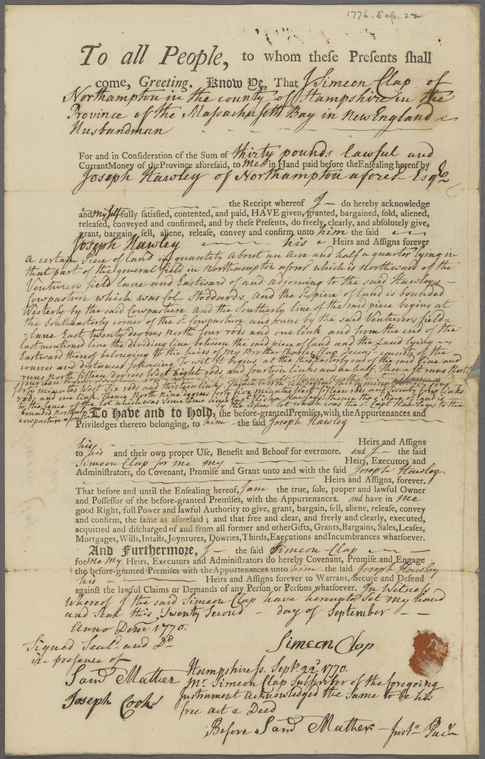 1776. Sep. 22
To all People, to whom these Presents shall
come, Greeting. Know Ye, That I Simeon Clap of
Northampton in the county of Hampshire in the
Province of the Massachusetts Bay in New England
Husbandman
For and in Consideration of the Sum of thirty pounds lawful and
Currant Money of the Province aforesaid, to me in Hand paid before the Ensealing hereof by
Joseph Hawley of Northampton afores.d Esq.r
the Receipt whereof I do hereby acknowledge
and my self fully satisfied, contented, and paid, HAVE given, granted, bargained, sold, aliened,
released, conveyed and confirmed, and by these Presents, do freely, clearly, and absolutely give,
grant, bargain, sell, aliene, release, convey and confirm unto him the said
Joseph Hawley his Heirs and Assigns forever
a certain piece of land in quantity about an Acre and half a quarter lying in
that part of the general field in Northampton afores.d which is Northward of the
Venturers field lane and Eastward of and adjoining to the said Hawleys
Cowpasture which was Col. Stoddards, And the s.d piece of land is bounded
Westerly by the said Cowpasture and the Southerly line of the said piece begins at
the Southeasterly corner of the s.d Cowpasture and runs by the said Venturers field
lane East twenty degrees North four rods and one link and from the end of the
last mentioned line the dividing line between the said piece of land and the land lying
Eastward thereof belonging to the heirs of my Brother
courses and distances following
runs North fifteen degrees
rods and one link, thence North Nine degrees
to the
bounded Northerly
cowpasture
To have and to hold, the before-granted Premises, with the Appurtenances and
Privileges thereto belonging, to him the said Joseph Hawley
his Heirs and Assigns
to his and their own proper Use, Benefit and Behoof for evermore. and I the said
Simeon Clap for me my Heirs, Executors and
Administrators, do Covenant, Promise and Grant unto and with the said Joseph Hawley
Heirs and Assigns, forever.
That before and until the Ensealing hereof, I am the true, sole, proper and lawful Owner
and Possessor of the before-granted Premises, with the Appurtenances. and have in me
good Right, full Power and lawful Authority to give, grant, bargain, sell, aliene, release, convey
and confirm, the same as aforesaid; and that free and clear, and freely and clearly, executed,
acquitted and discharged of and from all former and other Gifts, Grants, Bargains, Sales, Leases,
Mortgages, Wills, Intails, Joyntures, Dowries, Thirds, Executions and Incumbrances whatsoever.
And Furthermore, I the said Simeon Clap
for me my Heirs, Executors and Administrators do hereby Covenant, Promise, and Engage
the before-granted Premises with the Appurtenances unto him the said Joseph Hawley
his Heirs and Assigns forever to Warrant, Secure and Defend
against the lawful Claims or Demands of any Person or Persons whatsoever. In Witness
whereof I the said Simeon Clap have hereunto set my hand
and seal this Twenty Second day of September
Anno Domi 1770.
Signed Seal.d and D.d
in presence of
Simeon Clap
Sam.l Mather
Joseph Cook
Hampshire ss. Sept.r 22.d 1770.
M.r Simeon Clap subscriber of the foregoing
Instrument acknowledged the Same to be his
free act & Deed
Before Sam.l Mather Just.e Pac.s